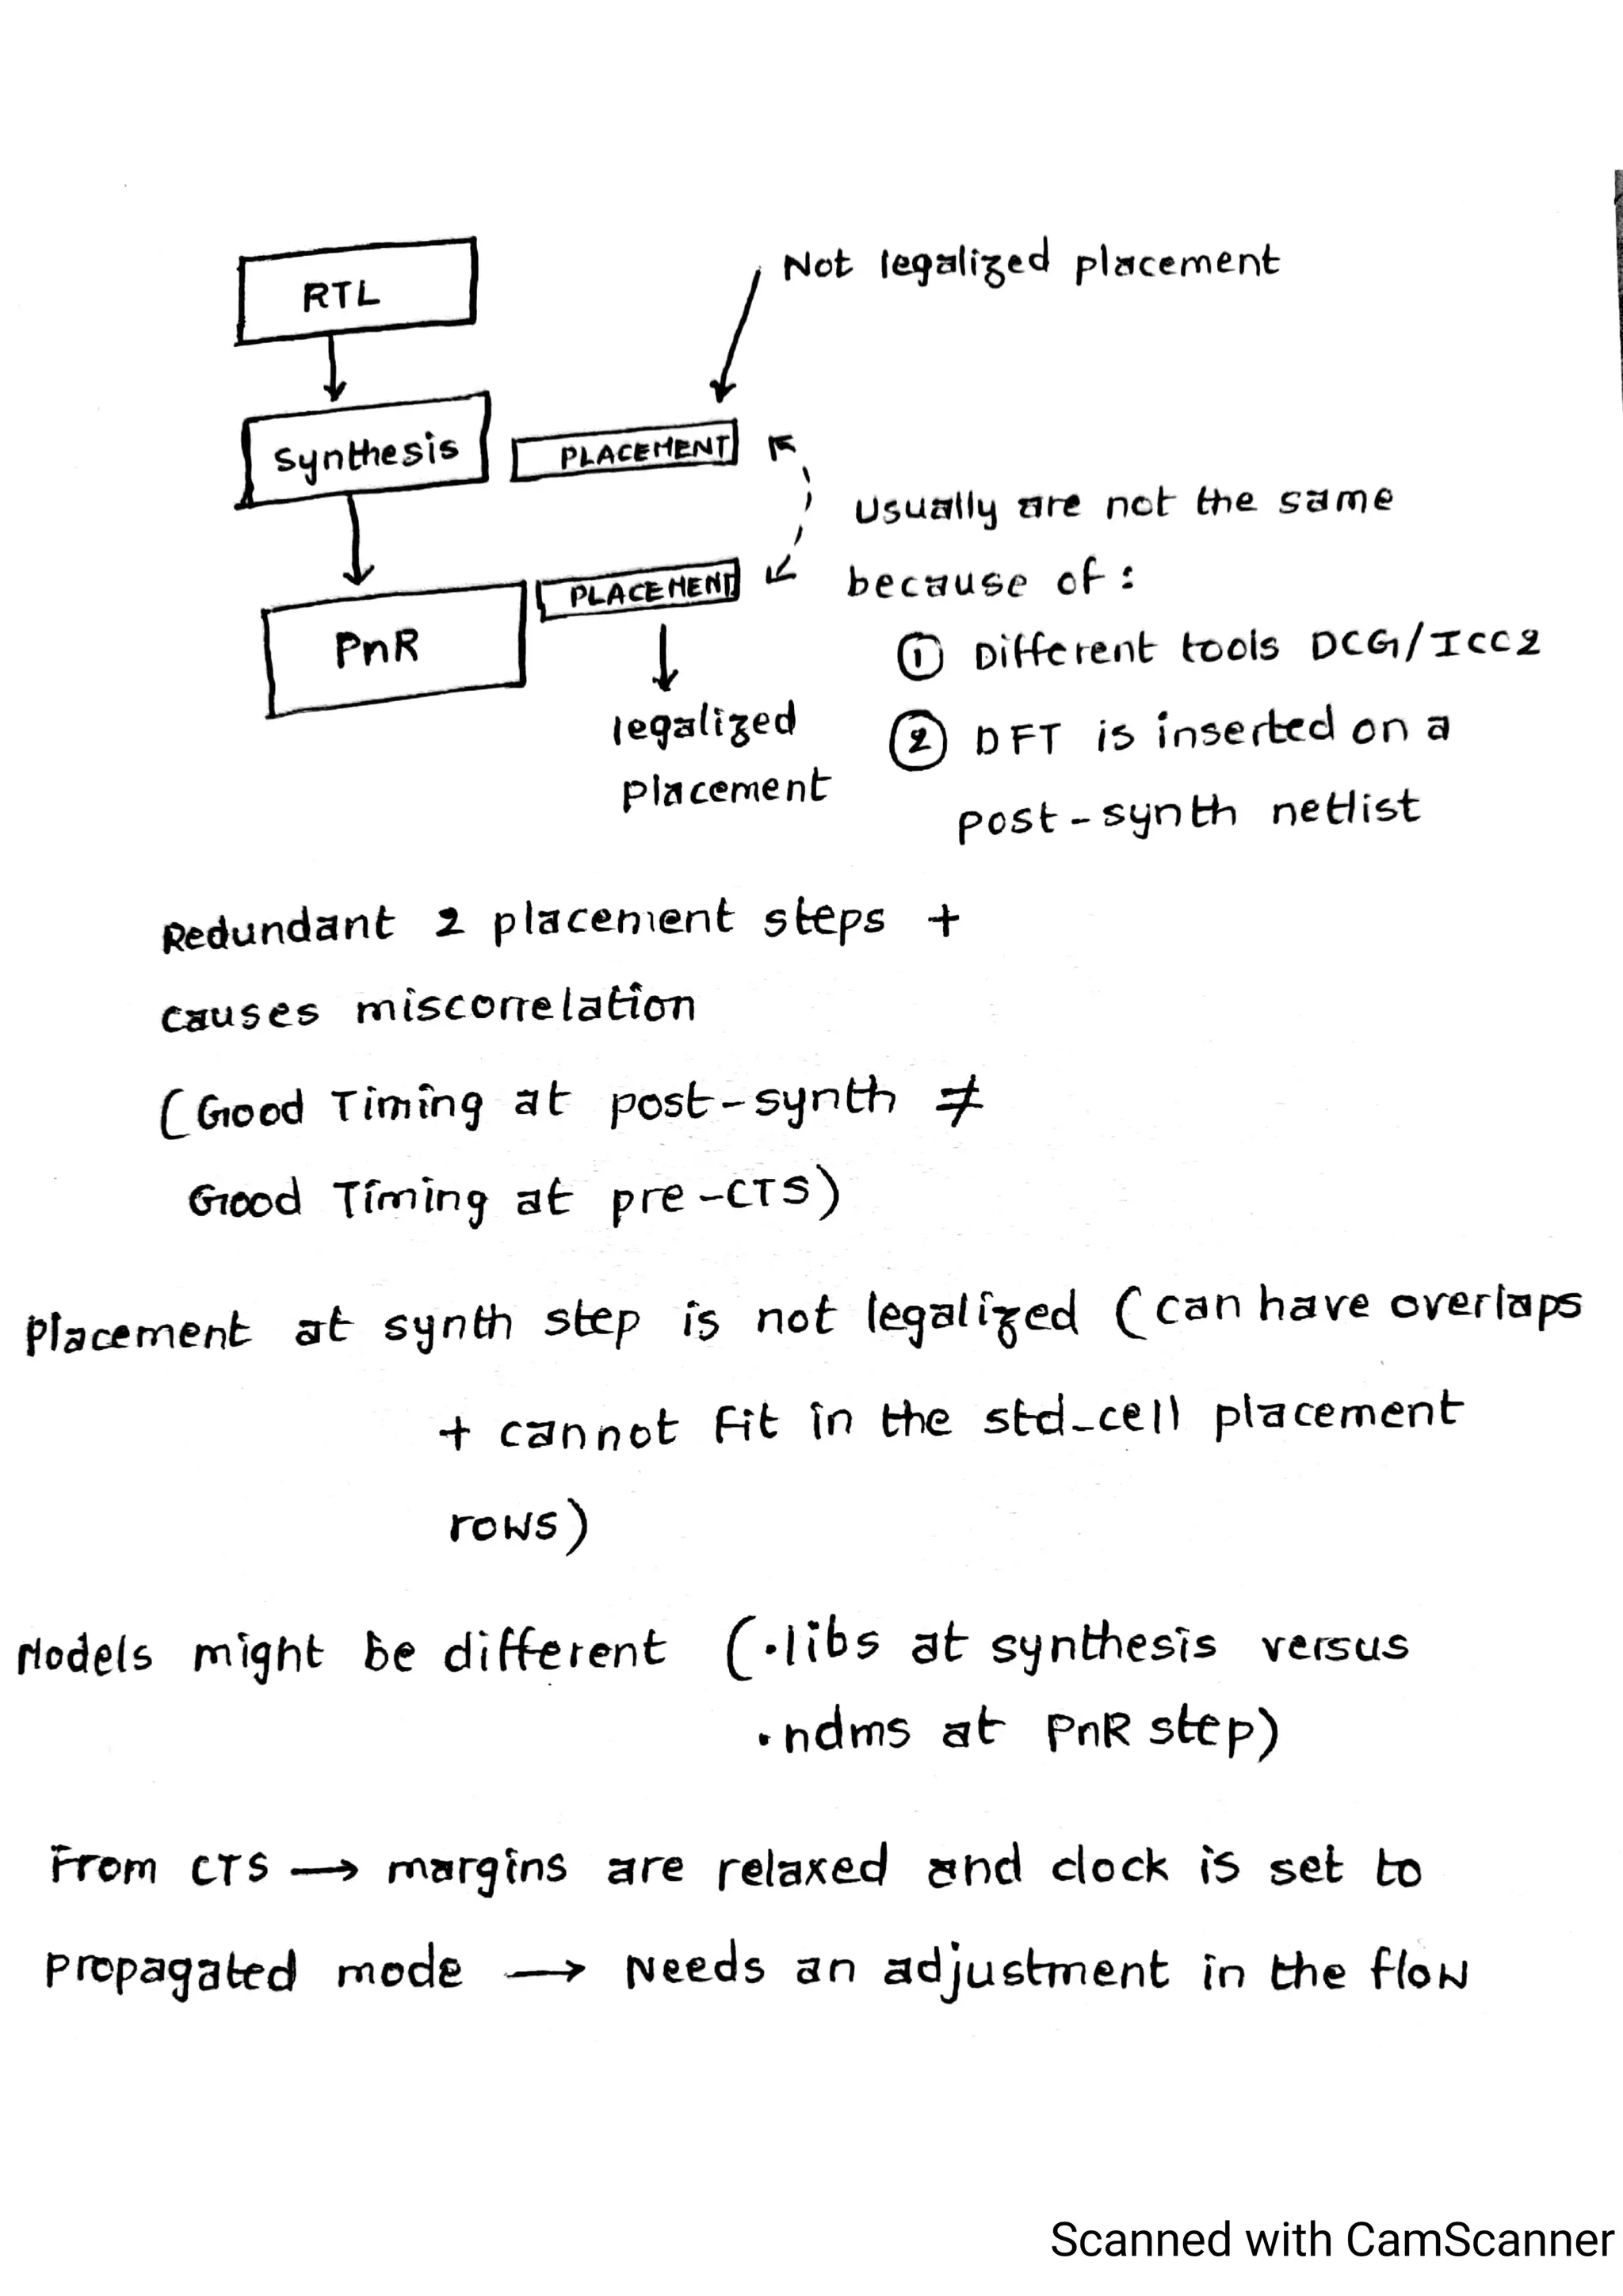 RTL
Not legalized placement
Synthesis
PLACEMENT
Usually are not the same
because of :
PLACEMENT
PnR
① Different tools DCG/ICC2
legalized
placement
② DFT is inserted on a
post-synth netlist
Redundant 2 placement steps +
causes miscorrelation
(Good Timing at post-synth ≠
Good Timing at pre-CTS)
Placement at synth step is not legalized (can have overlaps
+ cannot fit in the std_cell placement
rows)
Models might be different (.libs at synthesis versus
.ndms at PnR step)
From CTS → margins are relaxed and clock is set to
propagated mode → Needs an adjustment in the flow
Scanned with CamScanner